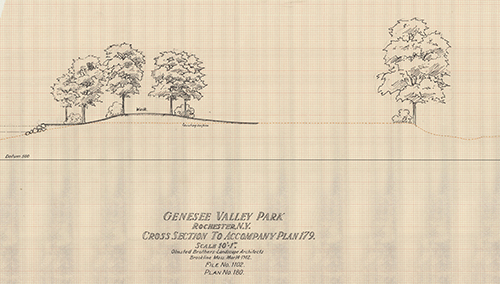 Walk
Datum 500
GENESEE VALLEY PARK
ROCHESTER, N.Y.
CROSS SECTION TO ACCOMPANY PLAN 179.
SCALE 10'-1".
Olmsted Brothers-Landscape Architects
Brookline Mass. Mar 14 1912.
FILE No. 1102.
PLAN No. 180.